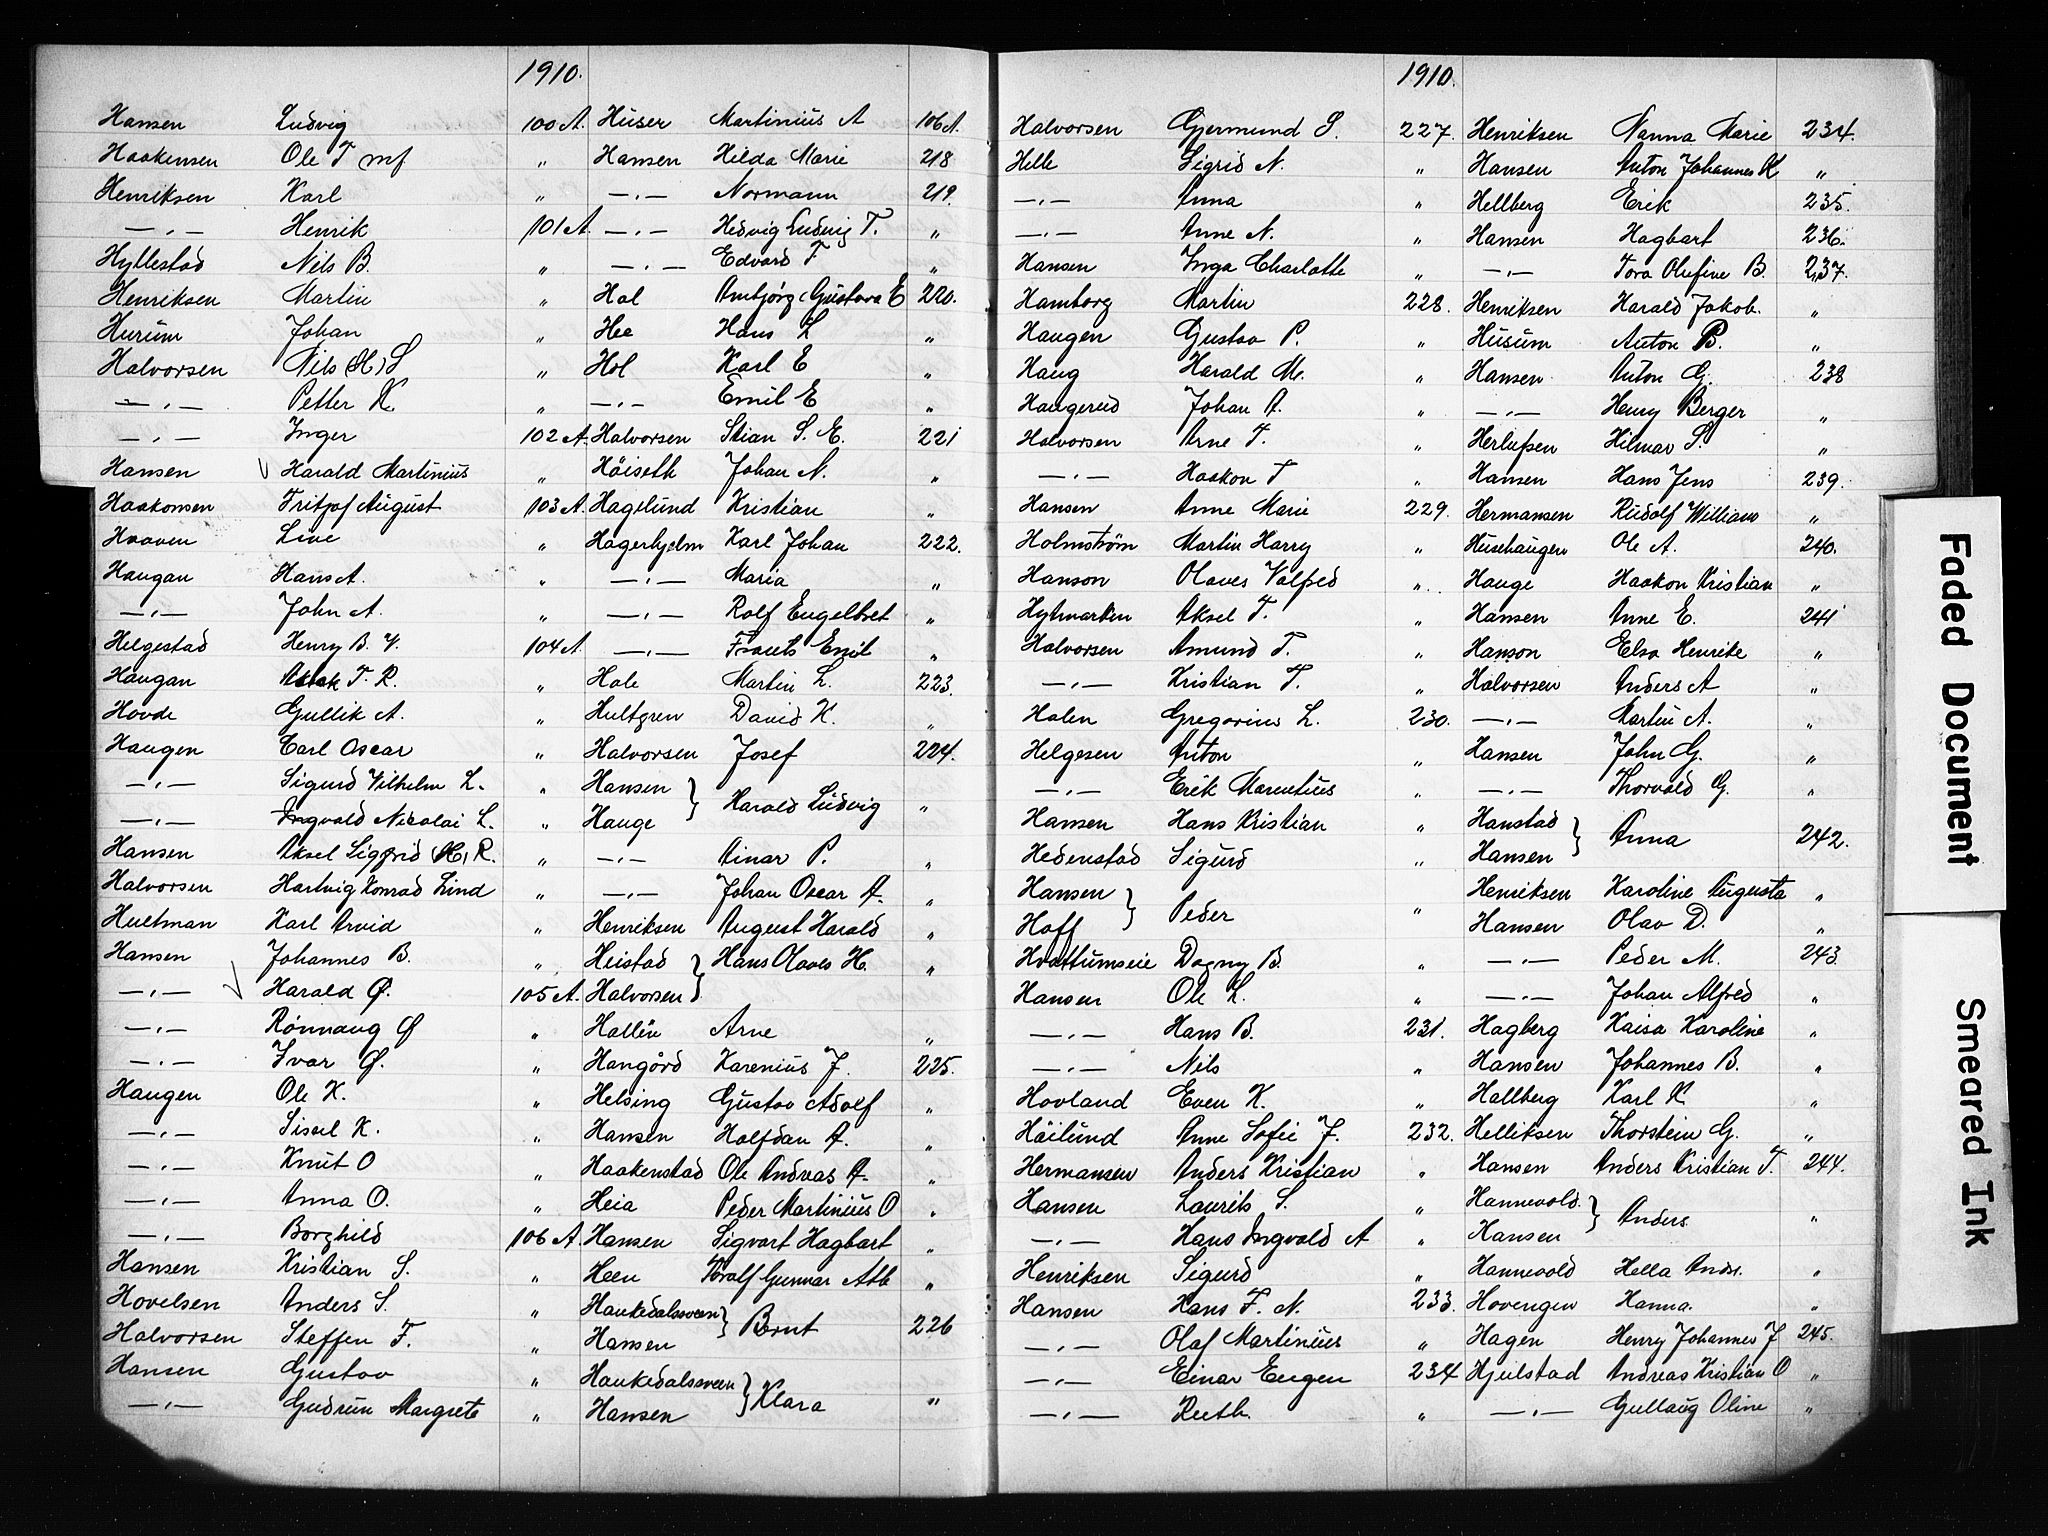 1910.
Hansen Ludvig 100 A.
Haakensen Ole T mf "
Henriksen Karl "
—„— Henrik 101 A.
Hyllestad Nils B. "
Henriksen Martin "
Hurum Johan "
Halvorsen Nils (H) S "
—„— Petter K. "
—„— Inger 102 A.
Hansen √ Harald Martinius
Haakonsen Fritjof August 103 A.
Hvaven Live "
Haugan Hans A. "
—„— John A. "
Helgestad Henry B. V. 104 A
Haugan T. R. "
Hovde Gullik A. "
Haugen Carl Oscar "
—„— Sigurd Vilhelm L. "
—„— Ingvald Nicolai L. "
Hansen Aksel Sigfrid (H) R. "
Halvorsen Hartvig Konrad Lind "
Hultman Karl Arvid "
Hansen Johannes B. "
—„— √ Harald Ø. 105 A.
—„— Rönnaug Ø "
—„— Ivar Ø. "
Haugen Ole K. "
—„— Sissel K. "
—„— Knut O "
—„— Anna O. "
—„— Borghild 106 A.
Hansen Kristian S. "
Hovelsen Anders S. "
Halvorsen Steffen F. "
Hansen Gustav "
—„— Gudrun Margrete "
Huser Martinius A 106 A.
Hansen Hilda Marie 218
—„— Normann 219.
—„— Hedvig Ludvig T. "
—„— Edvard F "
Hol Ambjörg (Gustava E 220.
Hee Hans L "
Hol Karl E "
—„— Emil E "
Halvorsen Stian S. E. 221
Höiseth Johan N. "
Hagelund Kristian "
Hagerhjelm Karl Johan 222.
—„— Maria "
—„— Rolf Engelbret "
—„— Frants Emil "
Hole Martin L. 223.
Hultgren David K. "
Halvorsen Josef 224.
Hansen } Harald Ludvig "
Hauge
—„— Einar P. "
—„— Johan Oscar A. "
Henriksen August Harald "
Heistad } Hans Olaves H. "
Halvorsen
Hallén Arne "
Hangård Karenius J. 225.
Helsing Gustav Adolf "
Hansen Halfdan A. "
Haakenstad Ole Andreas A. "
Heia Peder Martinius O "
Hansen Sigvart Hagbart "
Heen Toralf Gunnar Atle "
Haukedalsveen } Bernt 226
Hansen
Haukedalsveen } Klara "
Hansen
1910.
Halvorsen Gjermund S. 227.
Helle Sigrid N. "
—„— Anna "
—„— Anne N. "
Hansen Inga Charlotte "
Hamborg Martin 228.
Haugen Gustav P. "
Haug Harald M. "
Haugerud Johan A. "
Halvorsen Arne T. "
—„— Haakon T "
Hansen Anne Marie 229.
Holmström Martin Harry "
Hanson Olaves Valfred "
Hytmarken Aksel T. "
Halvorsen Amund T. "
—„— Kristian T. "
Holen Gregorius L. 230.
Helgesen Anton "
—„— Erik Marentius "
Hansen Hans Kristian "
Hedenstad Sigurd "
Hansen } Peder "
Hoff
Hvattumseie Dagny B. "
Hansen Ole L. "
—„— Hans B. 231.
—„— Nils "
Hovland Even K. "
Höilund Anne Sofie J. 232.
Hermansen Anders Kristian "
Hansen Laurits S. "
—„— Hans Ingvald A "
Henriksen Sigurd "
Hansen Hans F. N. 233.
—„— Olaf Martinius "
—„— Einar Eugen 234
—„— Ruth "
Henriksen Nanna Marie 234.
Hansen Anton Johannes K "
Hellberg Erik 235.
Hansen Hagbart 236.
—„— Tora Olufine B. 237.
Henriksen Harald Jakob. "
Husum Anton B. "
Hansen Anton G. 238
—„— Henry Berger "
Herlufsen Hilmar S. "
Hansen Hans Jens 239.
Hermansen Rudolf William "
Husehaugen Ole A. 240.
Hauge Haakon Kristian "
Hansen Anne E. 241
Hanson Elsa Henrike "
Halvorsen Anders A "
—„— Martin A. "
Hansen John G. "
—„— Thorvald G. "
Hanstad } Anna 242.
Hansen
Henriksen Karoline Augusta "
Hansen Olav D. "
—„— Peder M. 243
—„— Johan Alfred "
Hagberg Kaisa Karoline "
Hansen Johannes B. "
Hallberg Karl K "
Helliksen Thorstein G. "
Hansen Anders Kristian T. 244.
Hannevold } Anders. "
Hansen
Hannevold Hella Andr. "
Hovengen Hanna. "
Hagen Henry Johannes J 245.
Hjulstad Andreas Kristian O "
—„— Gullaug Oline "
Faded Document
Smeared Ink